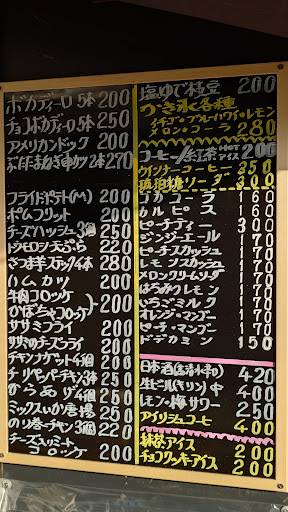 ポカディーロ5本 200
チョコポカディーロ5本 250
アメリカンドック 200
ぶたにくまかき串カツ2本 270
フライドポテト(M) 200
ポムフリット 200
チーズハッシュ3コ 250
トウモロコシ天ぷら 220
さつま芋スティック4本 280
ハムカツ 200
牛肉コロッケ 200
かぼちゃコロッケ
ササミフライ 200
ササミチーズフライ 200
チキンナゲット4コ 200
チリペッパーチキン3本 250
からあげ4コ 200
ミックスいか唐揚 250
のり巻チキン3コ 220
チーズinミート
コロッケ 200
塩ゆで枝豆 200
かき氷各種
イチゴ・ブルーハワイ・レモン
メロン・コーラ 280
コーヒー/紅茶 HOT アイス 200
ウインナーコーヒー 350
琥珀糖ソーダ 300
コカコーラ 160
カルピス 160
ピーチティー 300
ジンジャエール 170
ピーチスカッシュ 170
レモンスカッシュ 170
メロンクリームソーダ 170
はちみつレモン 170
いちごミルク 170
オレンジ・マンゴー 170
ピーチ・マンゴー 170
ドデカミン 150
日本酒(高清水) 420
生ビール(キリン)中 400
レモン・梅サワー 250
アイリッシュコーヒー 400
抹茶アイス 200
チョコクッキーアイス 200